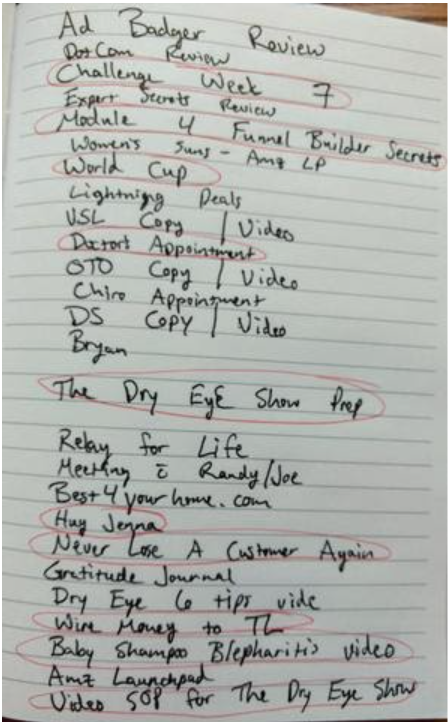 Ad Badger Review
DotCom Review
Challenge Week 7
Expert Secrets Review
Module 4 Funnel Builder Secrets
Women's Suns - Amz LP
World Cup
Lightning Deals
VSL Copy | Video
Doctors Appointment
OTO Copy | Video
Chiro Appointment
DS Copy | Video
Bryan
The Dry EyE Show Prep
Relay for Life
Meeting c̄ Randy/Joe
Best4yourhome.com
Hug Jenna
Never Lose A Customer Again
Gratitude Journal
Dry Eye 6 tips vide
Wire Money to TL
Baby Shampoo Blepharitis video
Amz Launchpad
Video SOP for The Dry Eye Show